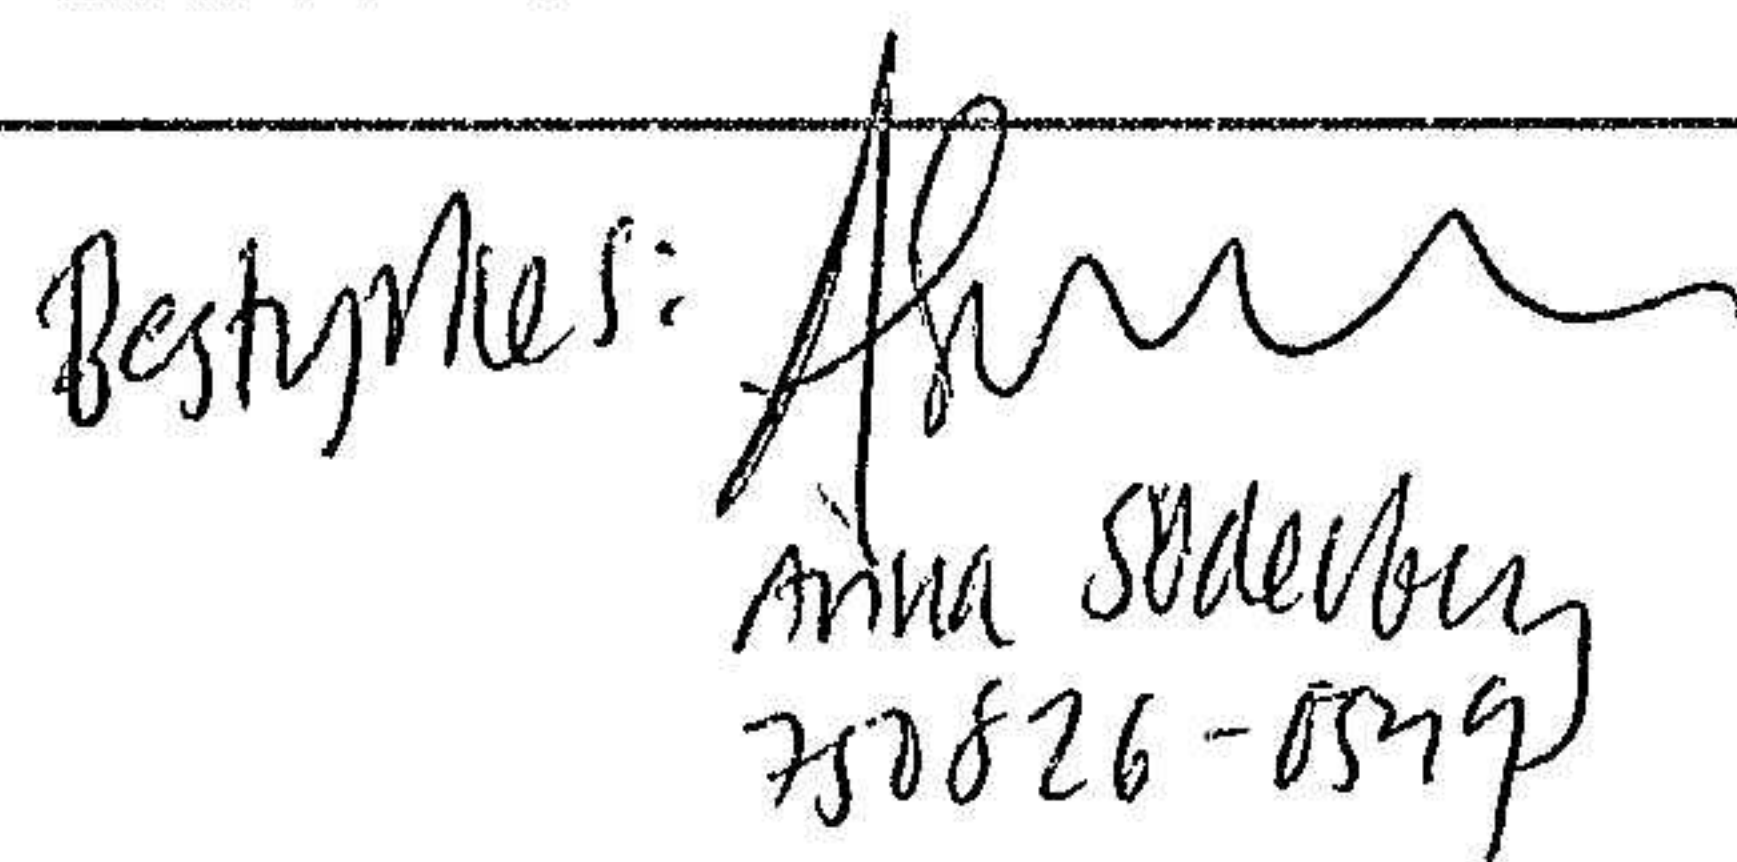 Bestyrkes:
Anna Söderberg
750826-0549